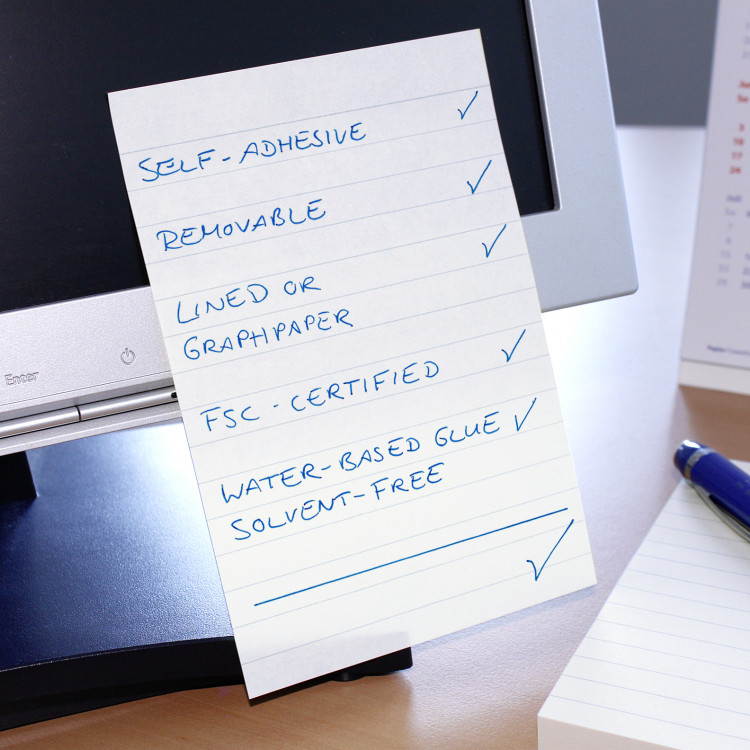 SELF-ADHESIVE ✓
REMOVABLE ✓
LINED OR ✓
GRAPHPAPER
FSC-CERTIFIED ✓
WATER-BASED GLUE ✓
SOLVENT-FREE
✓
Enter